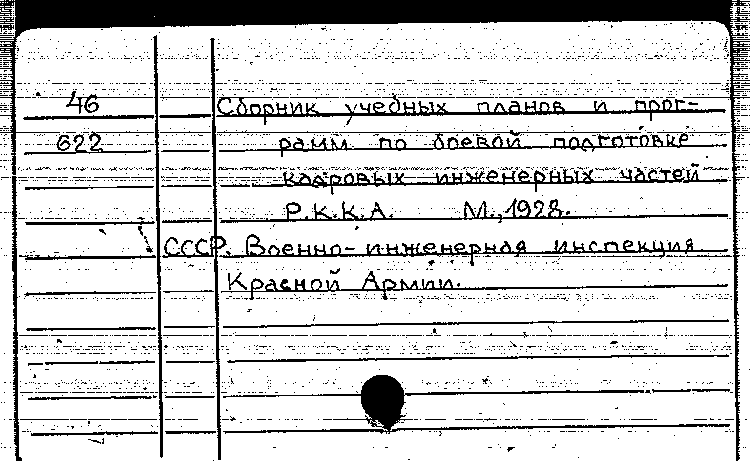 46 Сборник учебных планов и прог-
622 рамм по боевой подготовке
кадровых инженерных частей
Р.К.К.А. М., 1928.
СССР. Военно-инженерная инспекция
Красной Армии.